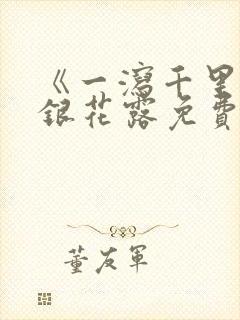 《一瀉千里
銀花露免費
董友軍